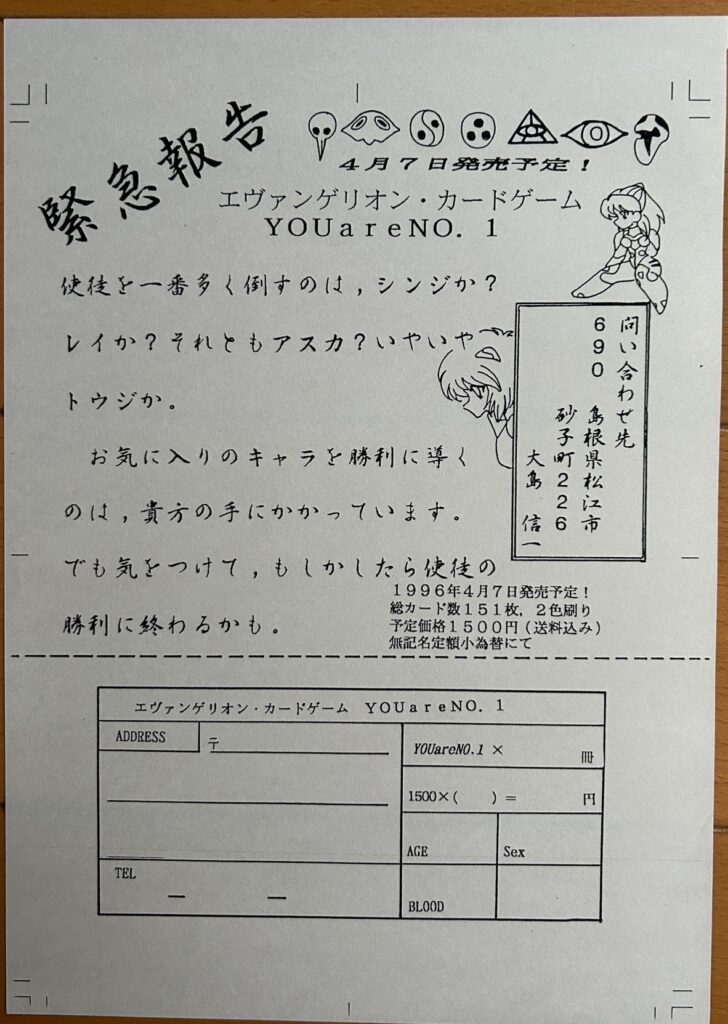 緊急報告
4月7日発売予定！
エヴァンゲリオン・カードゲーム
YOUareNO. 1
使徒を一番多く倒すのは,シンジか？
レイか？それともアスカ？いやいや
トウジか。
お気に入りのキャラを勝利に導く
のは,貴方の手にかかっています。
でも気をつけて,もしかしたら使徒の
勝利に終わるかも。
問い合わせ先
690 島根県松江市
砂子町226
大島 信一
1996年4月7日発売予定！
総カード数151枚, 2色刷り
予定価格1500円(送料込み)
無記名定額小為替にて
エヴァンゲリオン・カードゲーム YOUareNO. 1
ADDRESS
〒
YOUareNO.1 × 冊
1500×( ) = 円
AGE
Sex
TEL
BLOOD